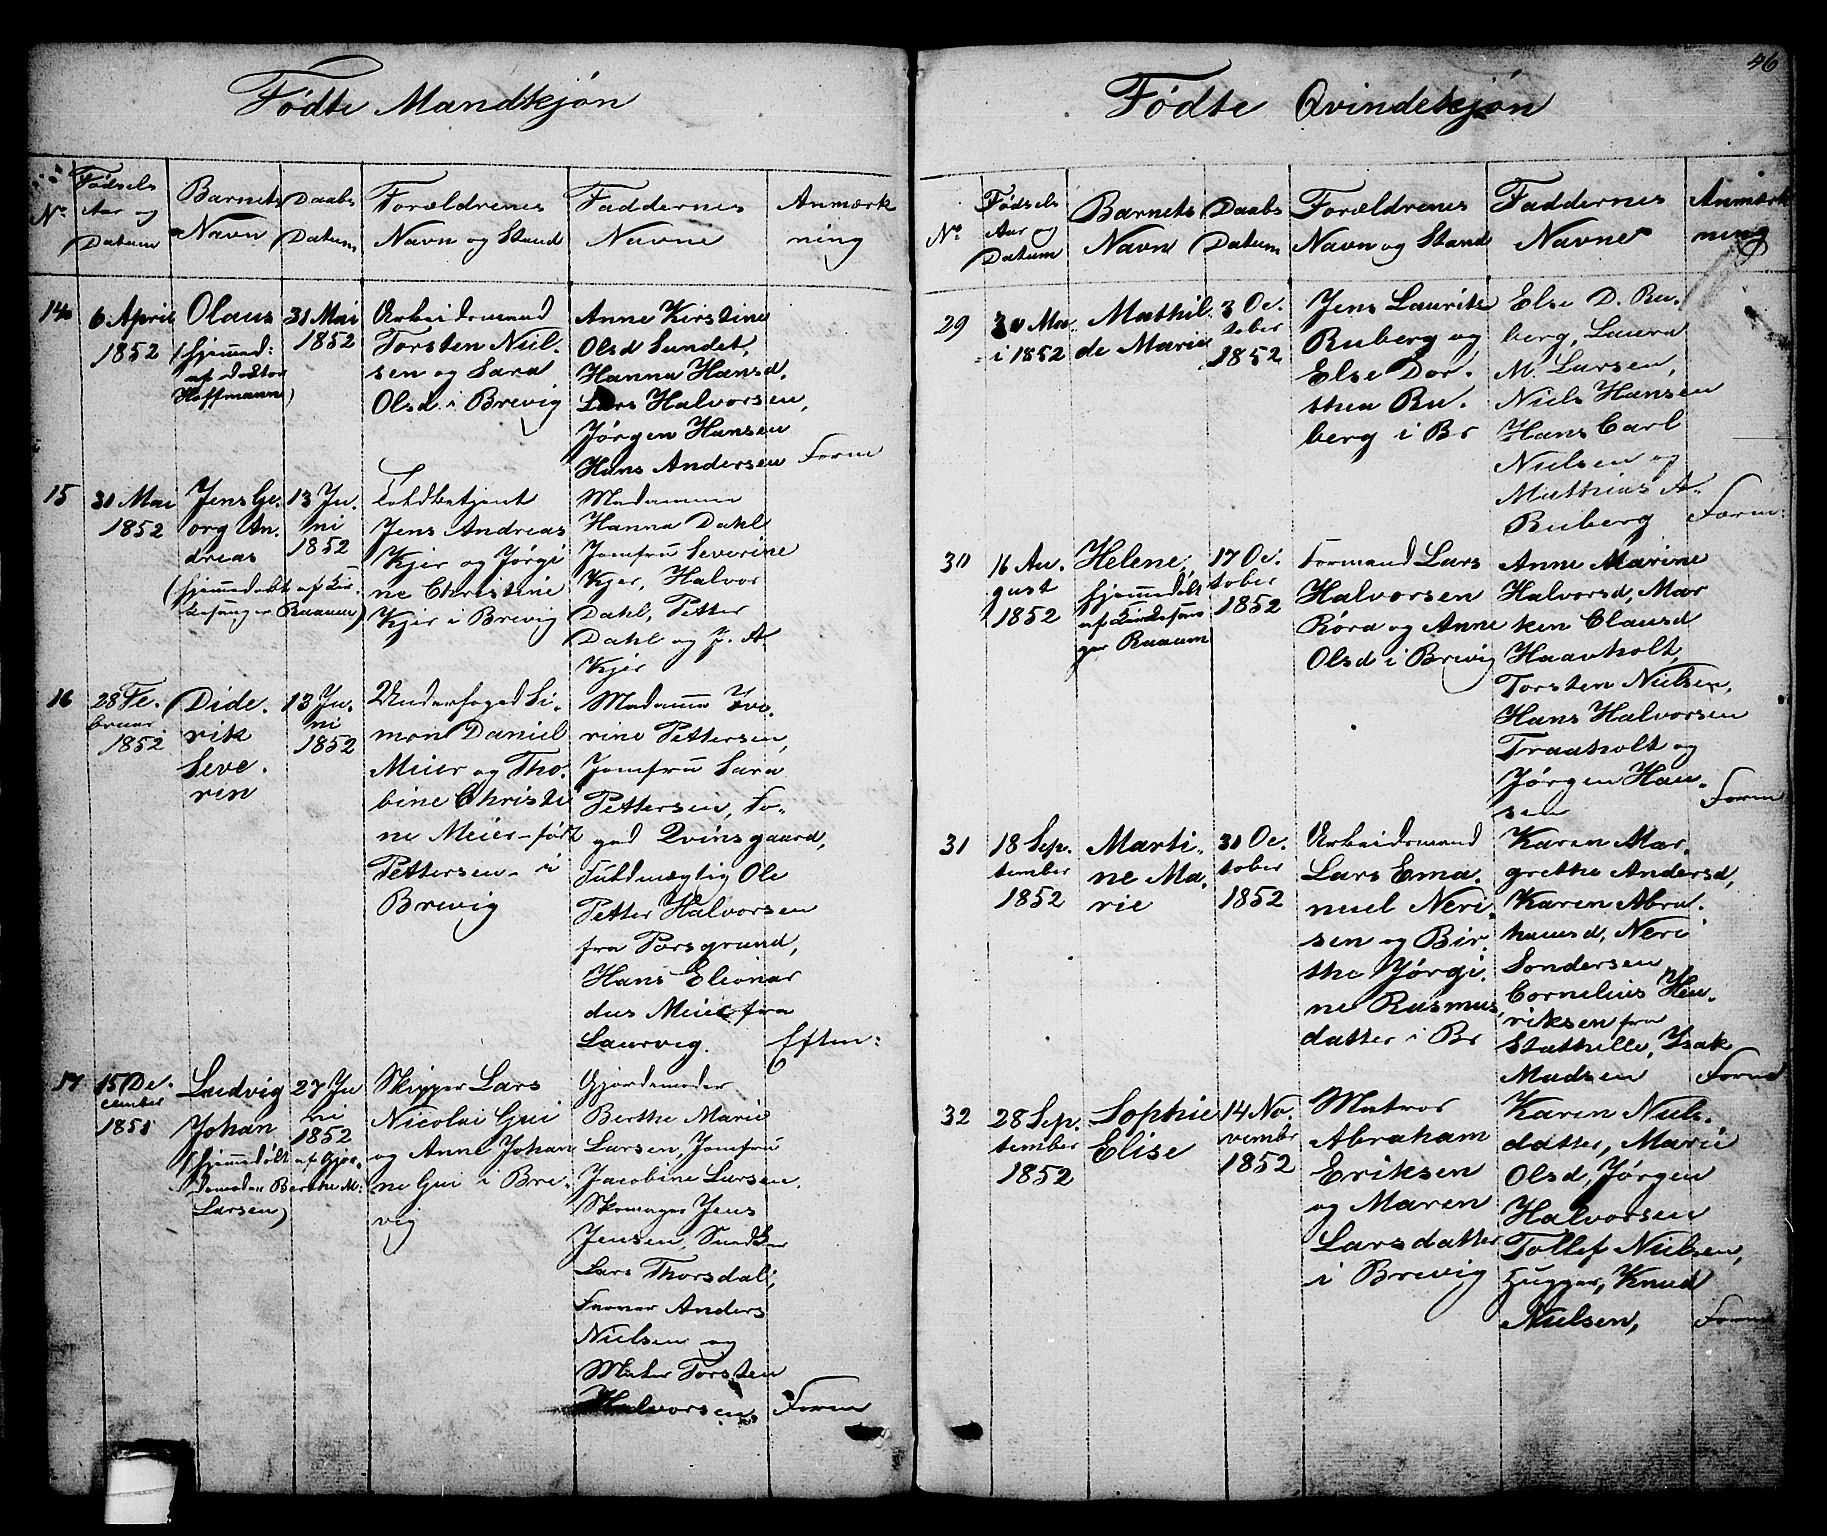 Fødte Mandkjøn
No
Fødsels
Aar og
Datum
Barnets
Navn
Daabs
Datum
Forældrenes
Navn og Stand
Faddernes
Navne
Anmærk
ning
14
6 April
1852
Olaus
(hjemmed:
af Doktor
Hoffmann)
31 Mai
1852
Arbeidsmand
Torsten Niel
sen og Sara
Olsd. i Brevig
Anne Kirstine
Olsd Sundet,
Hanna Hansd.
Lars Halvorsen,
Jørgen Hansen
Hans Andersen
Form
15
31 Mai
1852
Jens Ge.
org An.
dreas
(hjemmedøbt af Kir
kesanger Raaum)
13 Ju.
ni
1852
Toldbetjent
Jens Andreas
Kjer og Jørgi
ne Christine
Kjer i Brevig
Madamme
Hanna Dahl
Jomfru Severine
Kjer, Halvor
Dahl, Petter
Dahl og J. A.
Kjer
16
28 Fe.
bruar
1852
Dide.
rik
Seve.
rin
13 Ju.
ni
1852
Underfoged Si.
mon Daniel
Meier og Tho.
bine Christi
ne Meier født
Pettersen i
Brevig
Madamme
rine Pettersen,
Jomfru Sara
Pettersen, Fo-
ged Qvinsgaard,
Fuldmægtig Ole
Petter Halvorsen
fra Porsgrund,
Hans Eleonar
dus Meier fra
Laurvig.
Eftm:
17
15 De.
cember
1851
Ludvig
Johan
(hjemmedøbt af Gjor
demoder Berthe M.
Larsen)
27 Ju
ni
1852
Skipper Lars
Nicolai Gui
og Anne Johan
ne Gui i Bre.
vig
Gjordemoder
Berthe Marie
Larsen, Jomfru
Jacobine Larsen.
Skomager Jens
Jensen,
Lars Thorsdal,
Farver Anders
Nielsen og
Torsten
Halvorsen
Form
46
Fødte Qvindekjøn
No
Fødsels
Aar og
Datum
Barnets
Navn
Daabs
Datum
Forældrenes
Navn og Stand
Faddernes
Navne
Anmærk
ning
29
30 Ma.
i 1852
Mathil
de Marie
3 Oc
tober
1852
Jens Lauritz
Ruberg og
Else Dor.
thea Ru.
berg i Br
Else D. Ru.
berg, Laura
M. Larsen,
Niels Hansen
Hans Carl
Nielsen og
Mathias A.
Ruberg
Form:
30
16 Au.
gust
1852
Helene,
hjemmedøbt
af Kirkesan
ger Raaum
17 Oc.
tober
1852
Formand Lars
Halvorsen
Røra og Anne
Olsd i Brevig
Anne Marine
Halvorsd, Mar
ken Clausd
Haavholt,
Torsten Nielsen,
Hans Halvorsen
Traaholt og
Jørgen Han.
sen
Form
31
18 Sep.
tember
1852
Marti.
ne Ma.
rie
31 Oc.
tober
1852
Arbeidsmand
Lars Ema.
nuel Neri.
sen og Bir.
the Jørgi.
ne Rasmus
datter i Br
Karen Mar.
grethe Andersd,
Karen Abra.
hamsd, Neri
Sondersen
Cornelius Hen.
riksen fra
Stathelle, Isak
Madsen
Form
32
28 Sep.
tember
1852
Sophie
Elise
14 No.
vember
1852
Matros
Abraham
Eriksen
og Maren
Larsdatter
i Brevig
Karen Niels.
datter, Marie
Olsd, Jørgen
Halvorsen
Tollef Nielsen,
Hugger, Knud
Nielsen,
Form